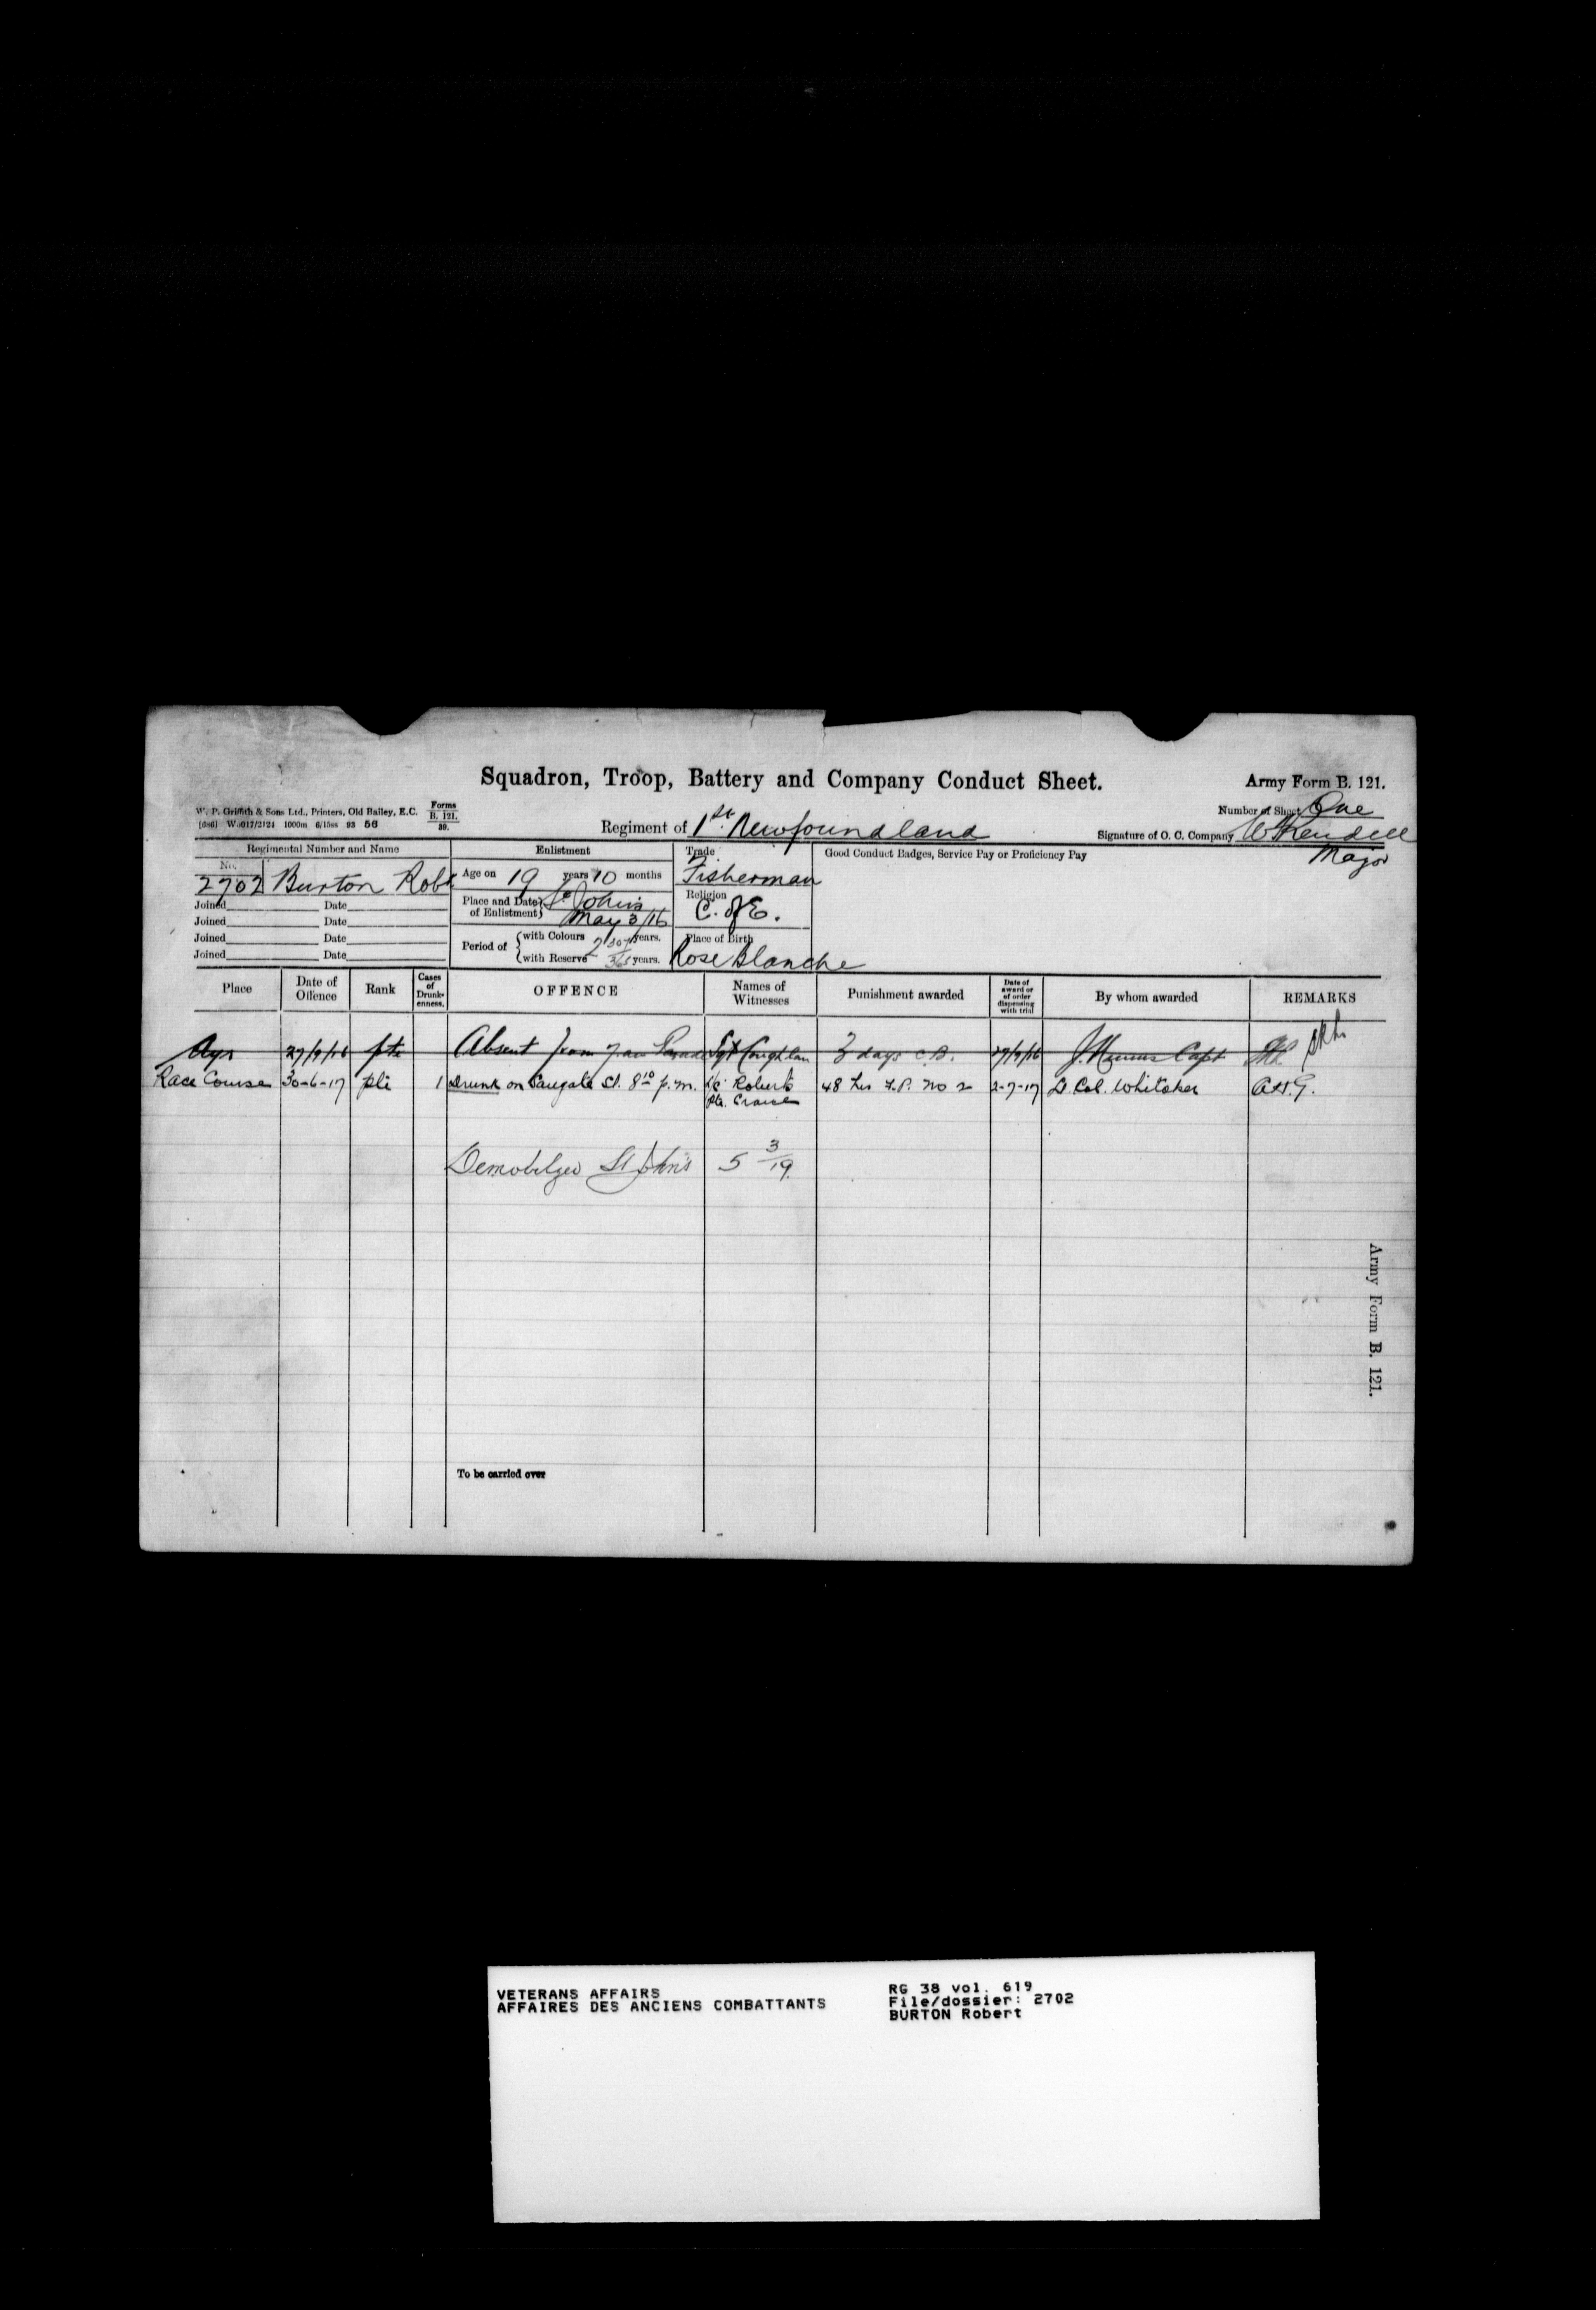 Squadron, Troop, Battery and Company Conduct Sheet.
Army Form B. 121.
W. P. Griffith & Sons Ltd., Printers, Old Bailey, E.C.
Forms B. 121. 39.
1000m 6/15ss 93 56
Number of Sheet One
Regiment of 1st Newfoundland
Signature of O. C. Company W Rendell
Major
Regimental Number and Name
No.
2702 Burton Robt
Joined Date
Joined Date
Joined Date
Joined Date
Enlistment
Age on 19 years 10 months
Place and Date of Enlistment} St. John's
May 3/16
Period of {with Colours 2 307/365 years.
with Reserve years.
Trade
Fisherman
Religion
C. of E.
Place of Birth
Rose Blanche
Good Conduct Badges, Service Pay or Proficiency Pay
Place Date of Offence Rank Cases of Drunk-enness. OFFENCE Names of Witnesses Punishment awarded Date of award or of order dispensing with trial By whom awarded REMARKS
Ayr 27/9/16 pte Absent from 7 am Parade Sgt Coughlan 3 days C.B. 27/9/16 Capt
Race Course 30-6-17 pte 1 Drunk on St. 8 10 p.m. L/c Roberts 48 hrs F.P. No 2 2-7-17 Lt. Col. Whitaker
Pte.
Demobilzed St John's 5 3/19
To be carried over
Army Form B. 121.
VETERANS AFFAIRS
AFFAIRES DES ANCIENS COMBATTANTS
RG 38 vol. 619
File/dossier: 2702
BURTON Robert